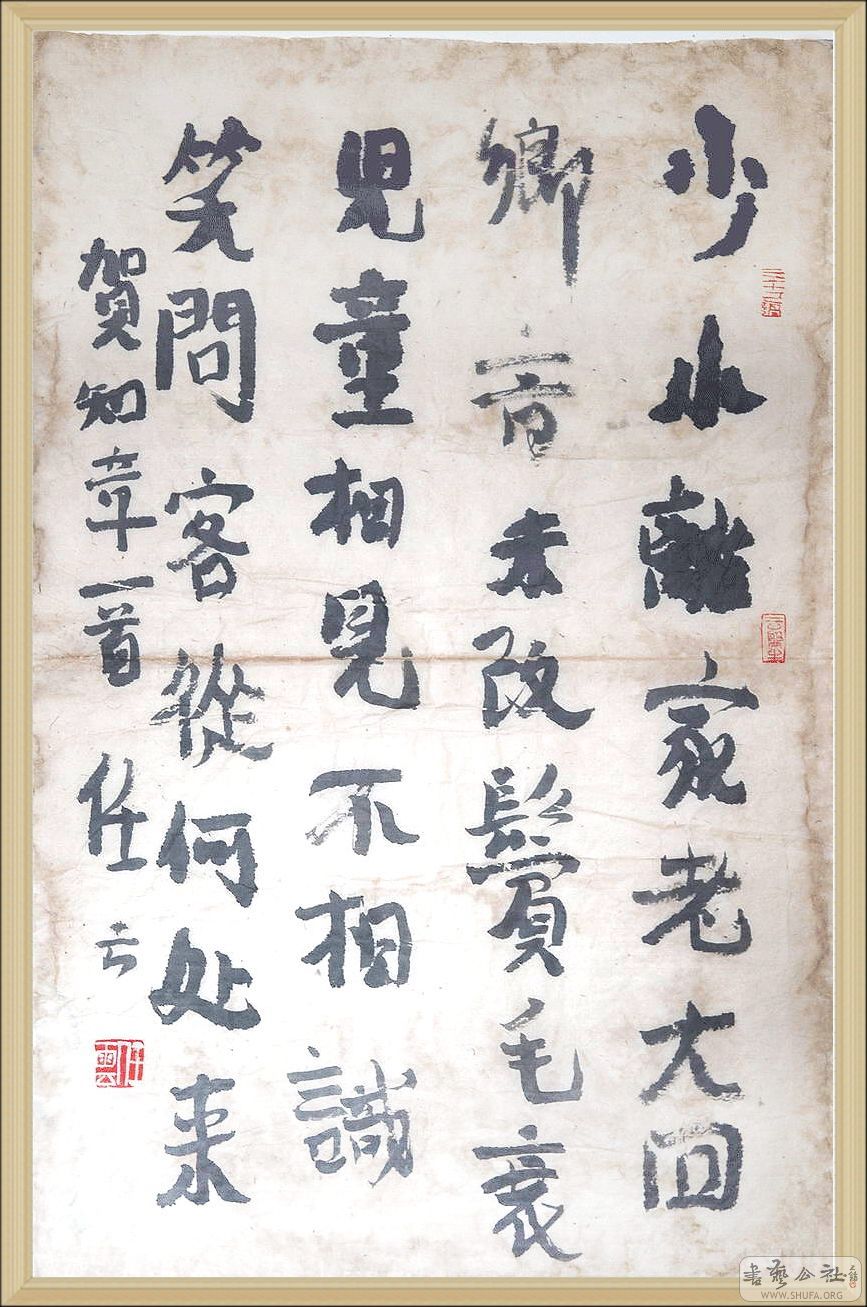 少小離家老大回
鄉音未改鬢毛衰
児童相見不相識
笑問客從何处来
賀知章一首 任云
書藝公社
WWW.SHUFA.ORG